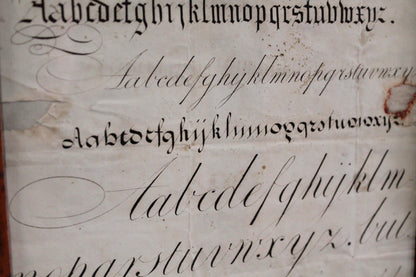 Aabcdefghijklmnopqrstuvwxyz.
Aabcdefghijklmnopqrstuvwxy
Aabcdefghijklmnopqrstuvwxyz
Aabcdefghijklm-
nopqrstuvwxyz. but